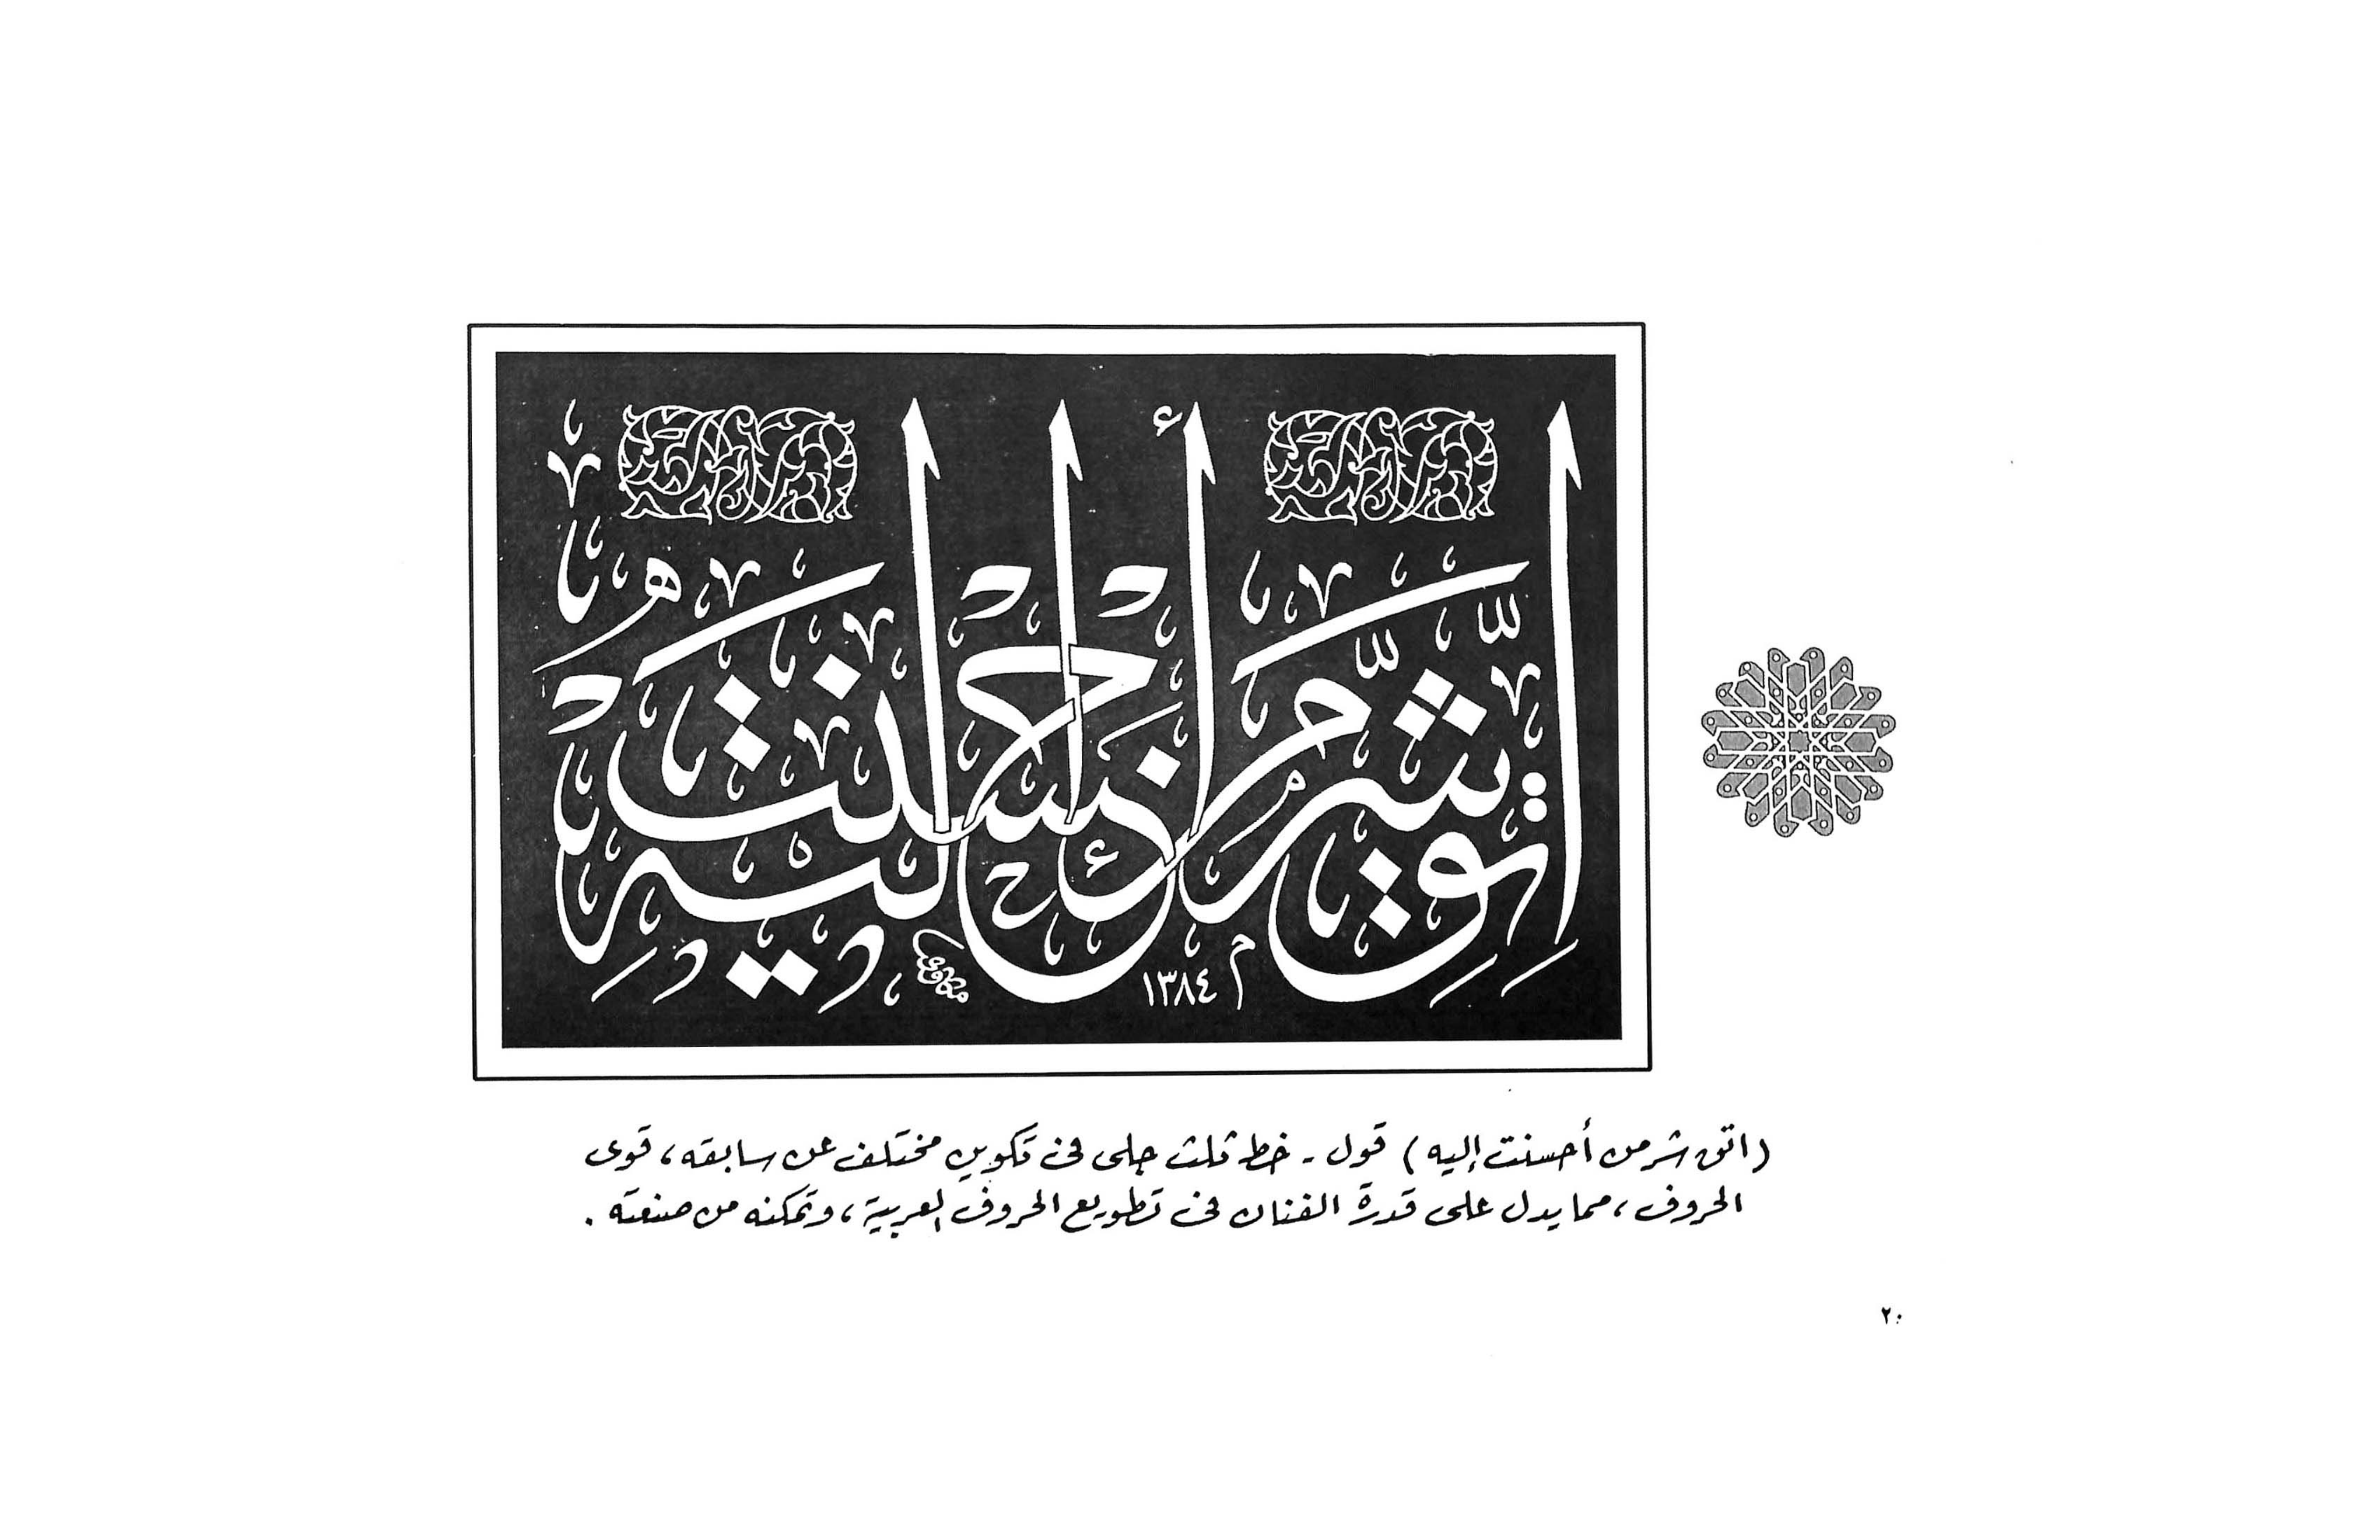 اتق شر من أحسنت إليه
١٣٨٤
(اتق شر من أحسنت إليه) قول - خط ثلث جلى فى تكوين مختلف عن سابقه، قوى
الحروف، مما يدل على قدرة الفنان فى تطويع الحروف العربية، وتمكنه من صنعته.
٢٠